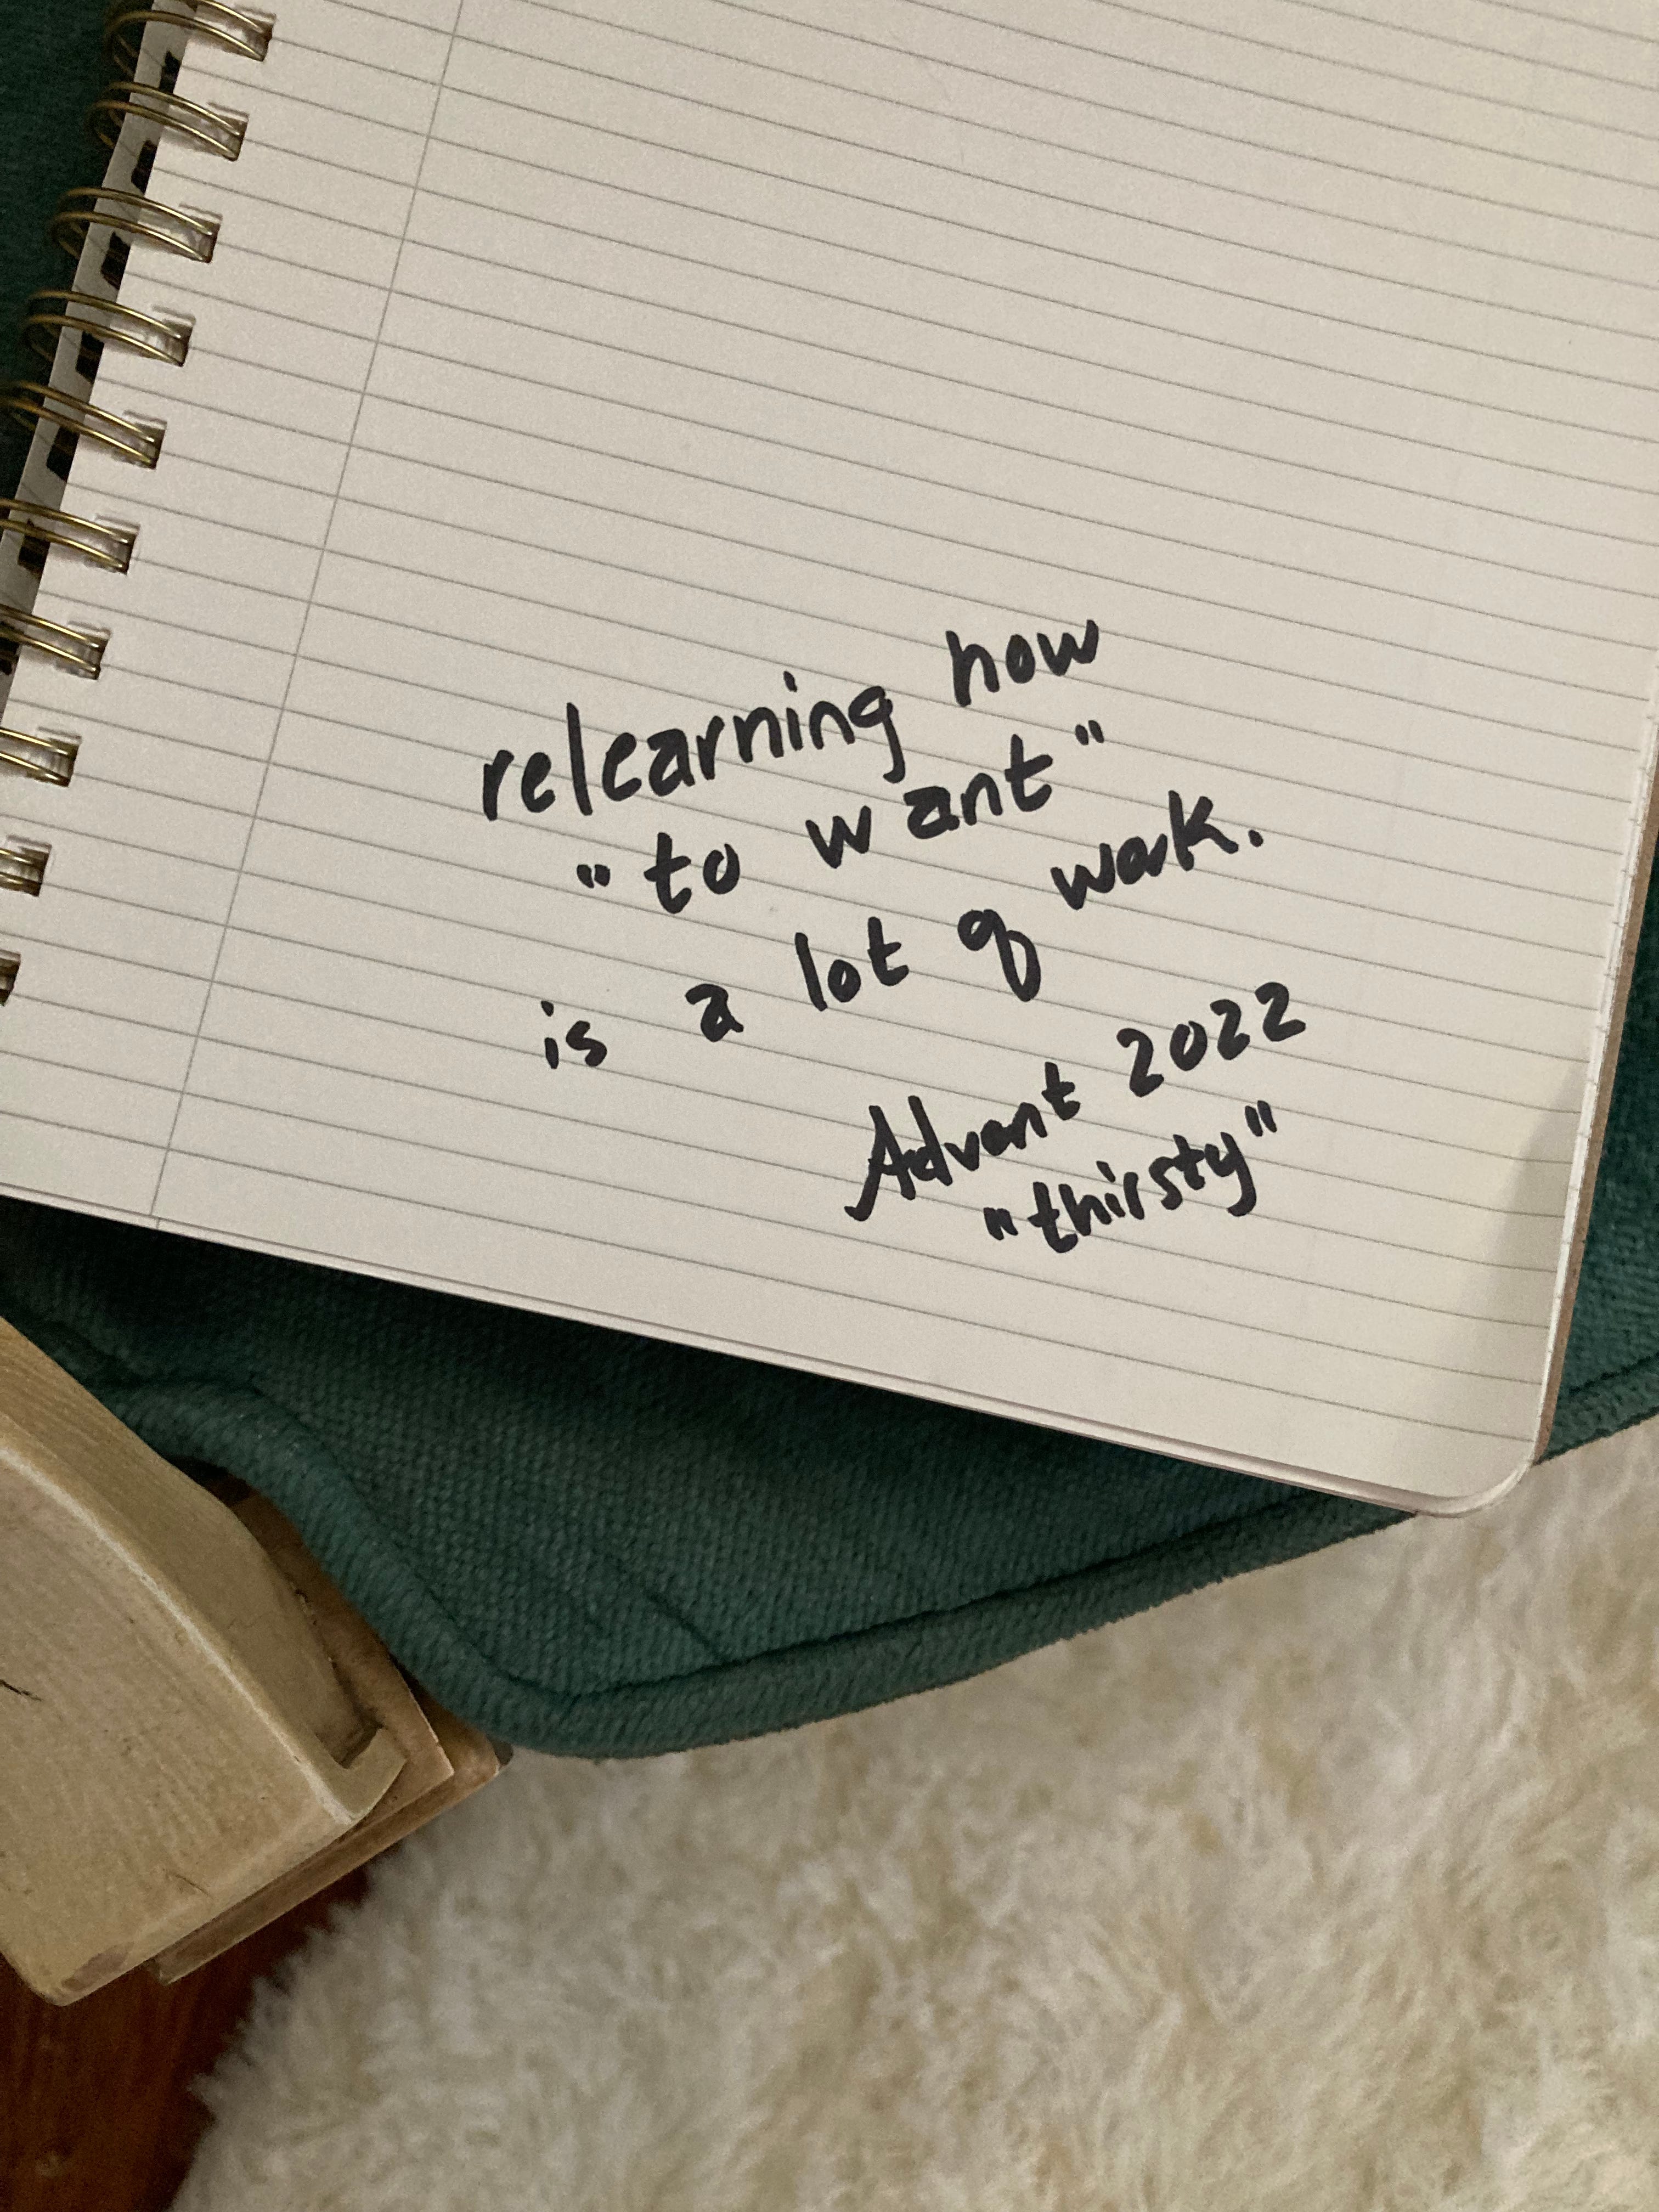 relearning how
"to want"
is a lot of work.
Advent 2022
"thirsty"